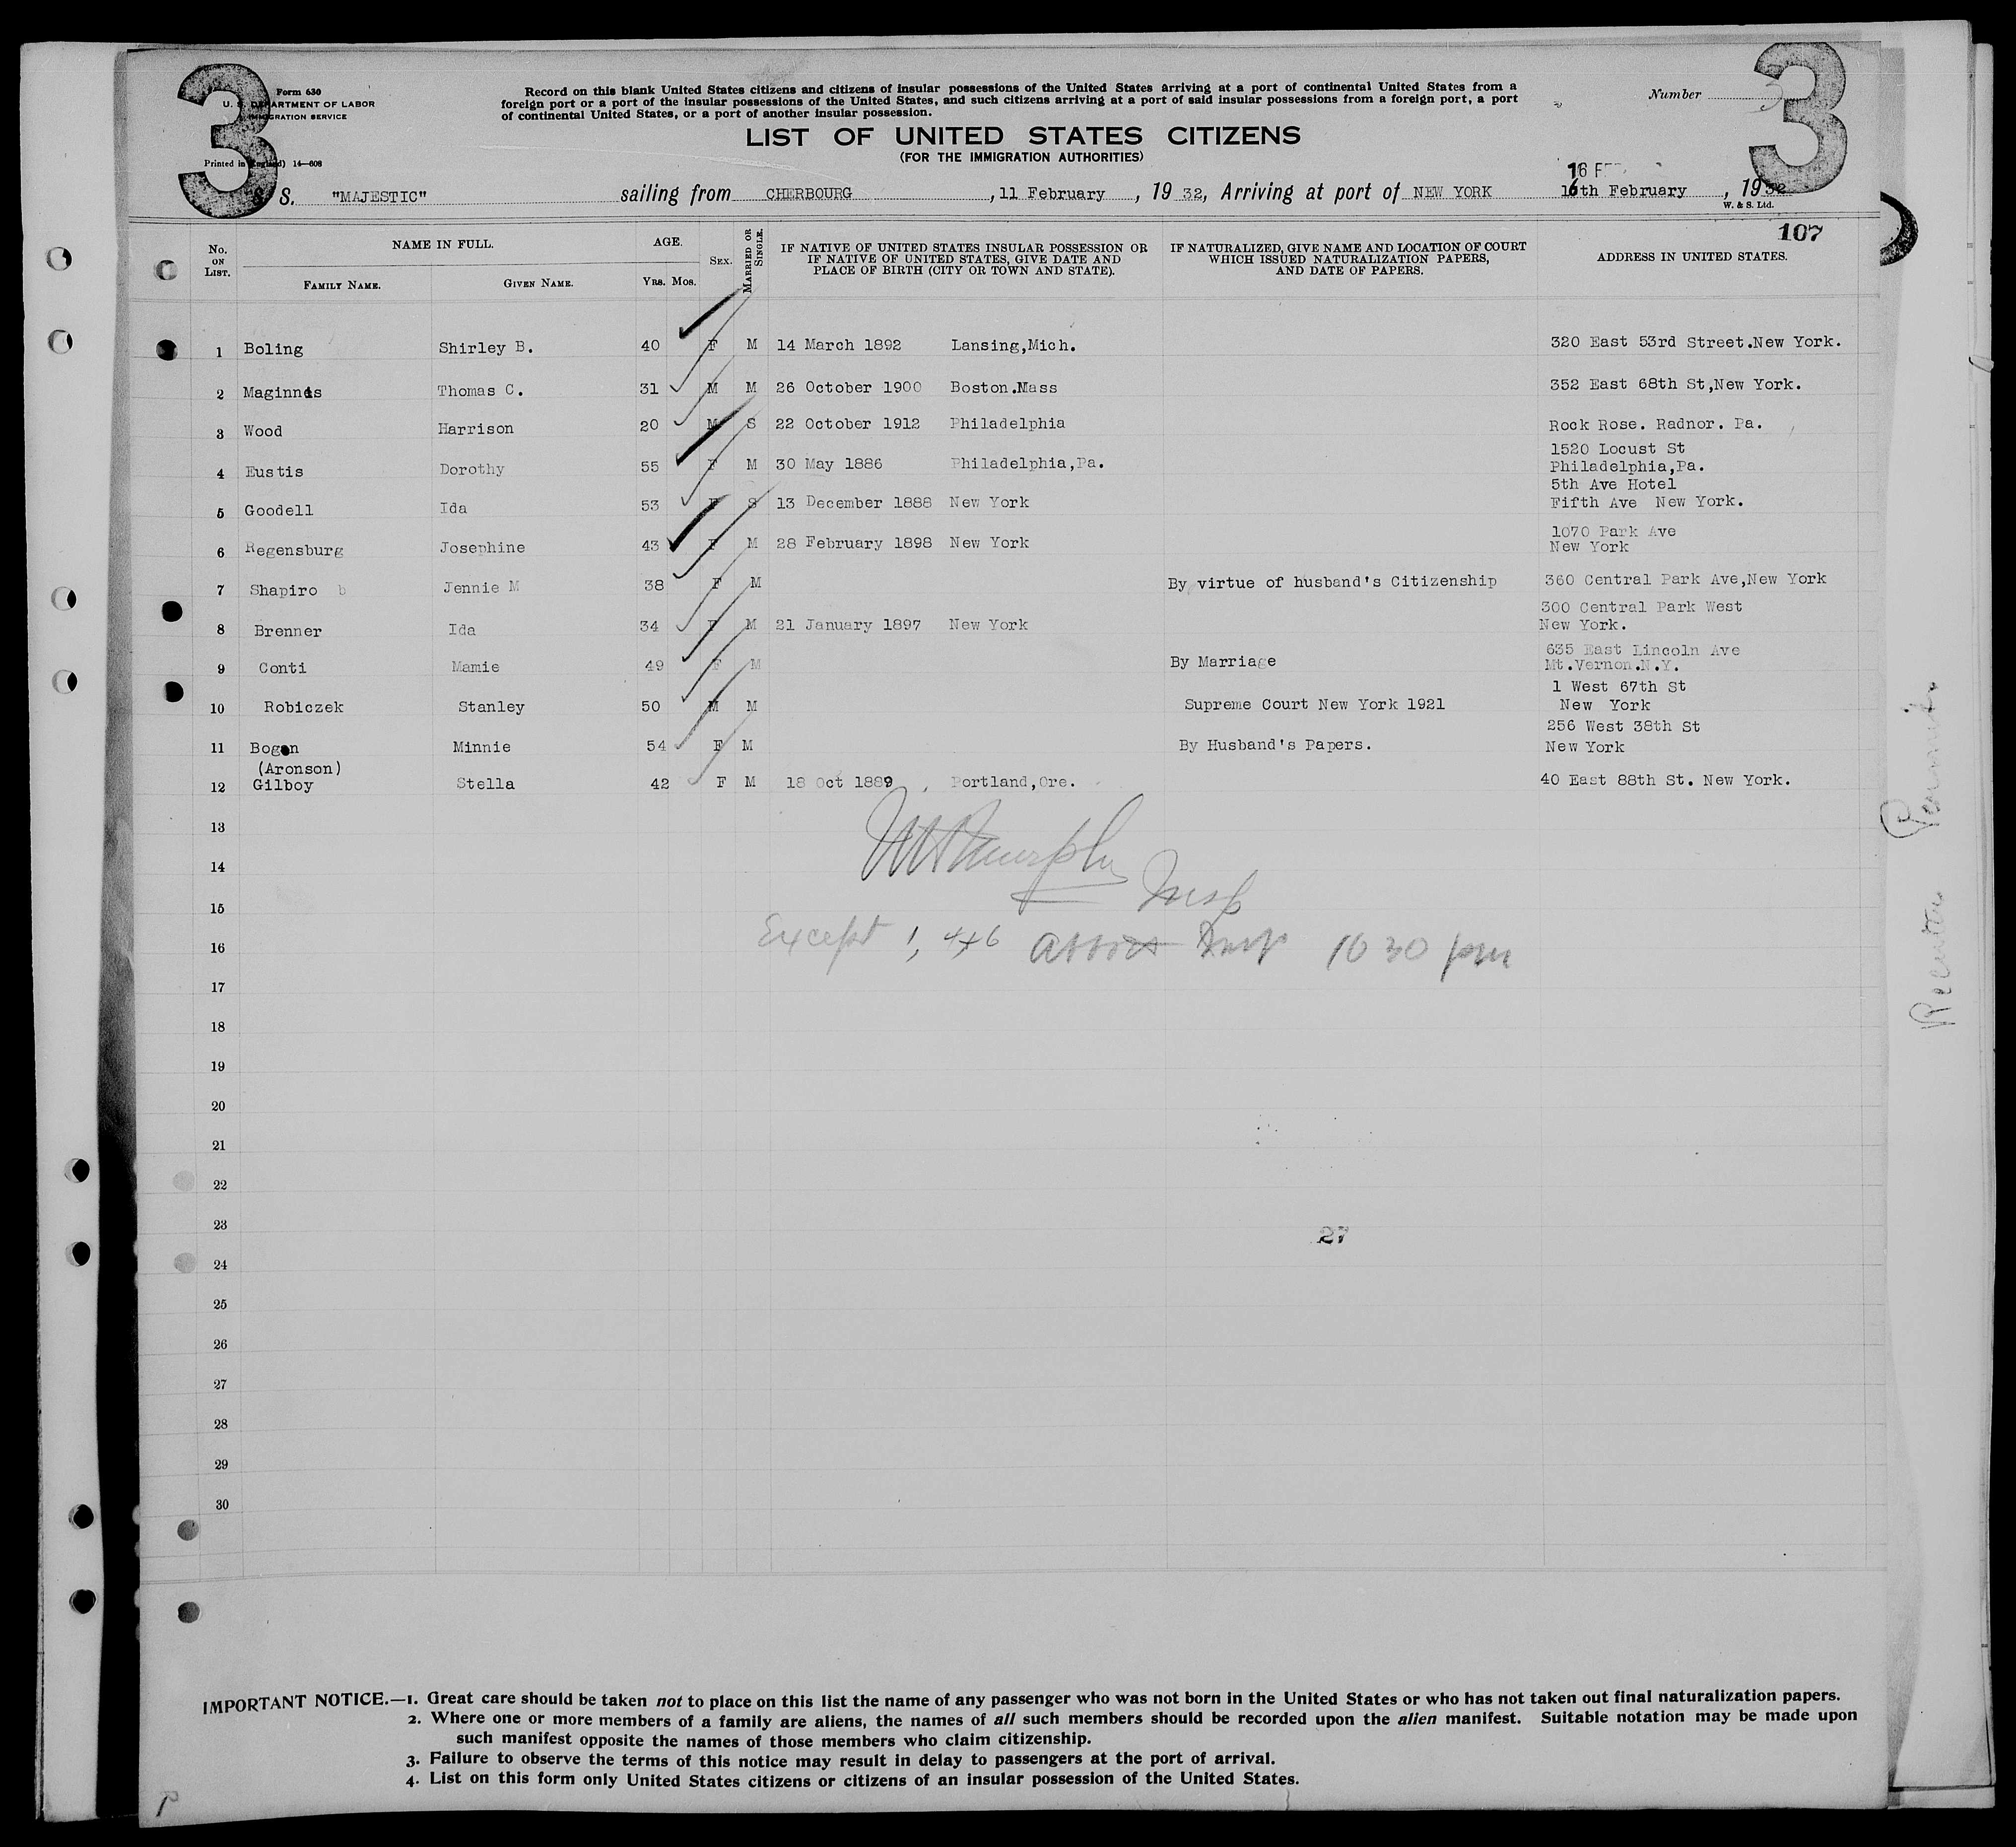 3
3
Form 630
U. S. DEPARTMENT OF LABOR
IMMIGRATION SERVICE
Printed in (England) 14—608
Record on this blank United States citizens and citizens of insular possessions of the United States arriving at a port of continental United States from a
foreign port or a port of the insular possessions of the United States, and such citizens arriving at a port of said insular possessions from a foreign port, a port
of continental United States, or a port of another insular possession.
Number 3
LIST OF UNITED STATES CITIZENS
(FOR THE IMMIGRATION AUTHORITIES)
S. S. "MAJESTIC" sailing from CHERBOURG , 11 February , 19 32, Arriving at port of NEW YORK 16th February , 1932
W. & S. Ltd.
107
No. ON LIST. NAME IN FULL. AGE. SEX. MARRIED OR SINGLE. IF NATIVE OF UNITED STATES INSULAR POSSESSION OR IF NATIVE OF UNITED STATES, GIVE DATE AND PLACE OF BIRTH (CITY OR TOWN AND STATE). IF NATURALIZED, GIVE NAME AND LOCATION OF COURT WHICH ISSUED NATURALIZATION PAPERS, AND DATE OF PAPERS. ADDRESS IN UNITED STATES.
FAMILY NAME. GIVEN NAME. YRS. MOS.
1 Boling Shirley B. 40 F M 14 March 1892 Lansing,Mich. 320 East 53rd Street.New York.
2 Maginnis Thomas C. 31 M M 26 October 1900 Boston.Mass 352 East 68th St,New York.
3 Wood Harrison 20 M S 22 October 1912 Philadelphia Rock Rose. Radnor. Pa.
4 Eustis Dorothy 55 F M 30 May 1886 Philadelphia,Pa. 1520 Locust St
Philadelphia,Pa.
5 Goodell Ida 53 F S 13 December 1888 New York 5th Ave Hotel
Fifth Ave New York.
6 Regensburg Josephine 43 F M 28 February 1898 New York 1070 Park Ave
New York
7 Shapiro b Jennie M 38 F M By virtue of husband's Citizenship 360 Central Park Ave,New York
8 Brenner Ida 34 F M 21 January 1897 New York 300 Central Park West
New York.
9 Conti Mamie 49 F M By Marriage 635 East Lincoln Ave
Mt.Vernon.N.Y.
10 Robiczek Stanley 50 M M Supreme Court New York 1921 1 West 67th St
New York
11 Bogen Minnie 54 F M By Husband's Papers. 256 West 38th St
New York
(Aronson)
12 Gilboy Stella 42 F M 18 Oct 1889 Portland,Ore. 40 East 88th St. New York.
13
14
Murphy
Insp
15
16
Except 1, 4+6 Insp 10 30 pm
17
18
19
20
21
22
23
27
24
25
26
27
28
29
30
IMPORTANT NOTICE.—1. Great care should be taken not to place on this list the name of any passenger who was not born in the United States or who has not taken out final naturalization papers.
2. Where one or more members of a family are aliens, the names of all such members should be recorded upon the alien manifest. Suitable notation may be made upon
such manifest opposite the names of those members who claim citizenship.
3. Failure to observe the terms of this notice may result in delay to passengers at the port of arrival.
4. List on this form only United States citizens or citizens of an insular possession of the United States.